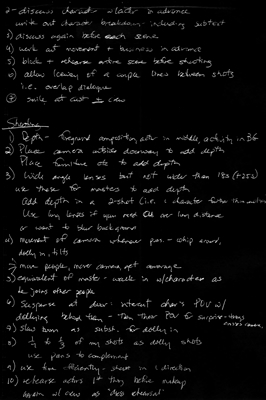 2 - discuss character w/actor in advance
write out character breakdown - including subtext
3) discuss again before each scene
4) work out movement + business in advance
5) block + rehearse entire scene before shooting
6) allow leeway of a couple lines between shots
i.e. overlap dialogue
7) smile at cast + crew
Shooting
1) Depth - foreground composition, actor in middle, activity in BG
2) Place camera outside doorway to add depth
Place furniture etc to add depth
3) Wide angle lenses but not wider than 18
use these for masters to add depth
Add depth in a 2-shot (i.e. 1 character further than
Use long lenses if you need CU from long distance
or want to blur background
4) movement of camera whenever poss. - whip around,
dolly in, tilts
move people, move camera, get coverage
5) equivalent of master - walk in w/character as
he joins other people
6) Suspense at door: intercut char's POV w/
dollying behind them - Then their POV for surprise -
7) slow turn as subst. for dolly in
8) 1/4 to 1/3 of my shots as dolly shots
use pans to complement
9) use time efficiently - shoot in 1 direction
10) rehearse actors 1st thing before makeup
w/ crew as "dress rehearsal"